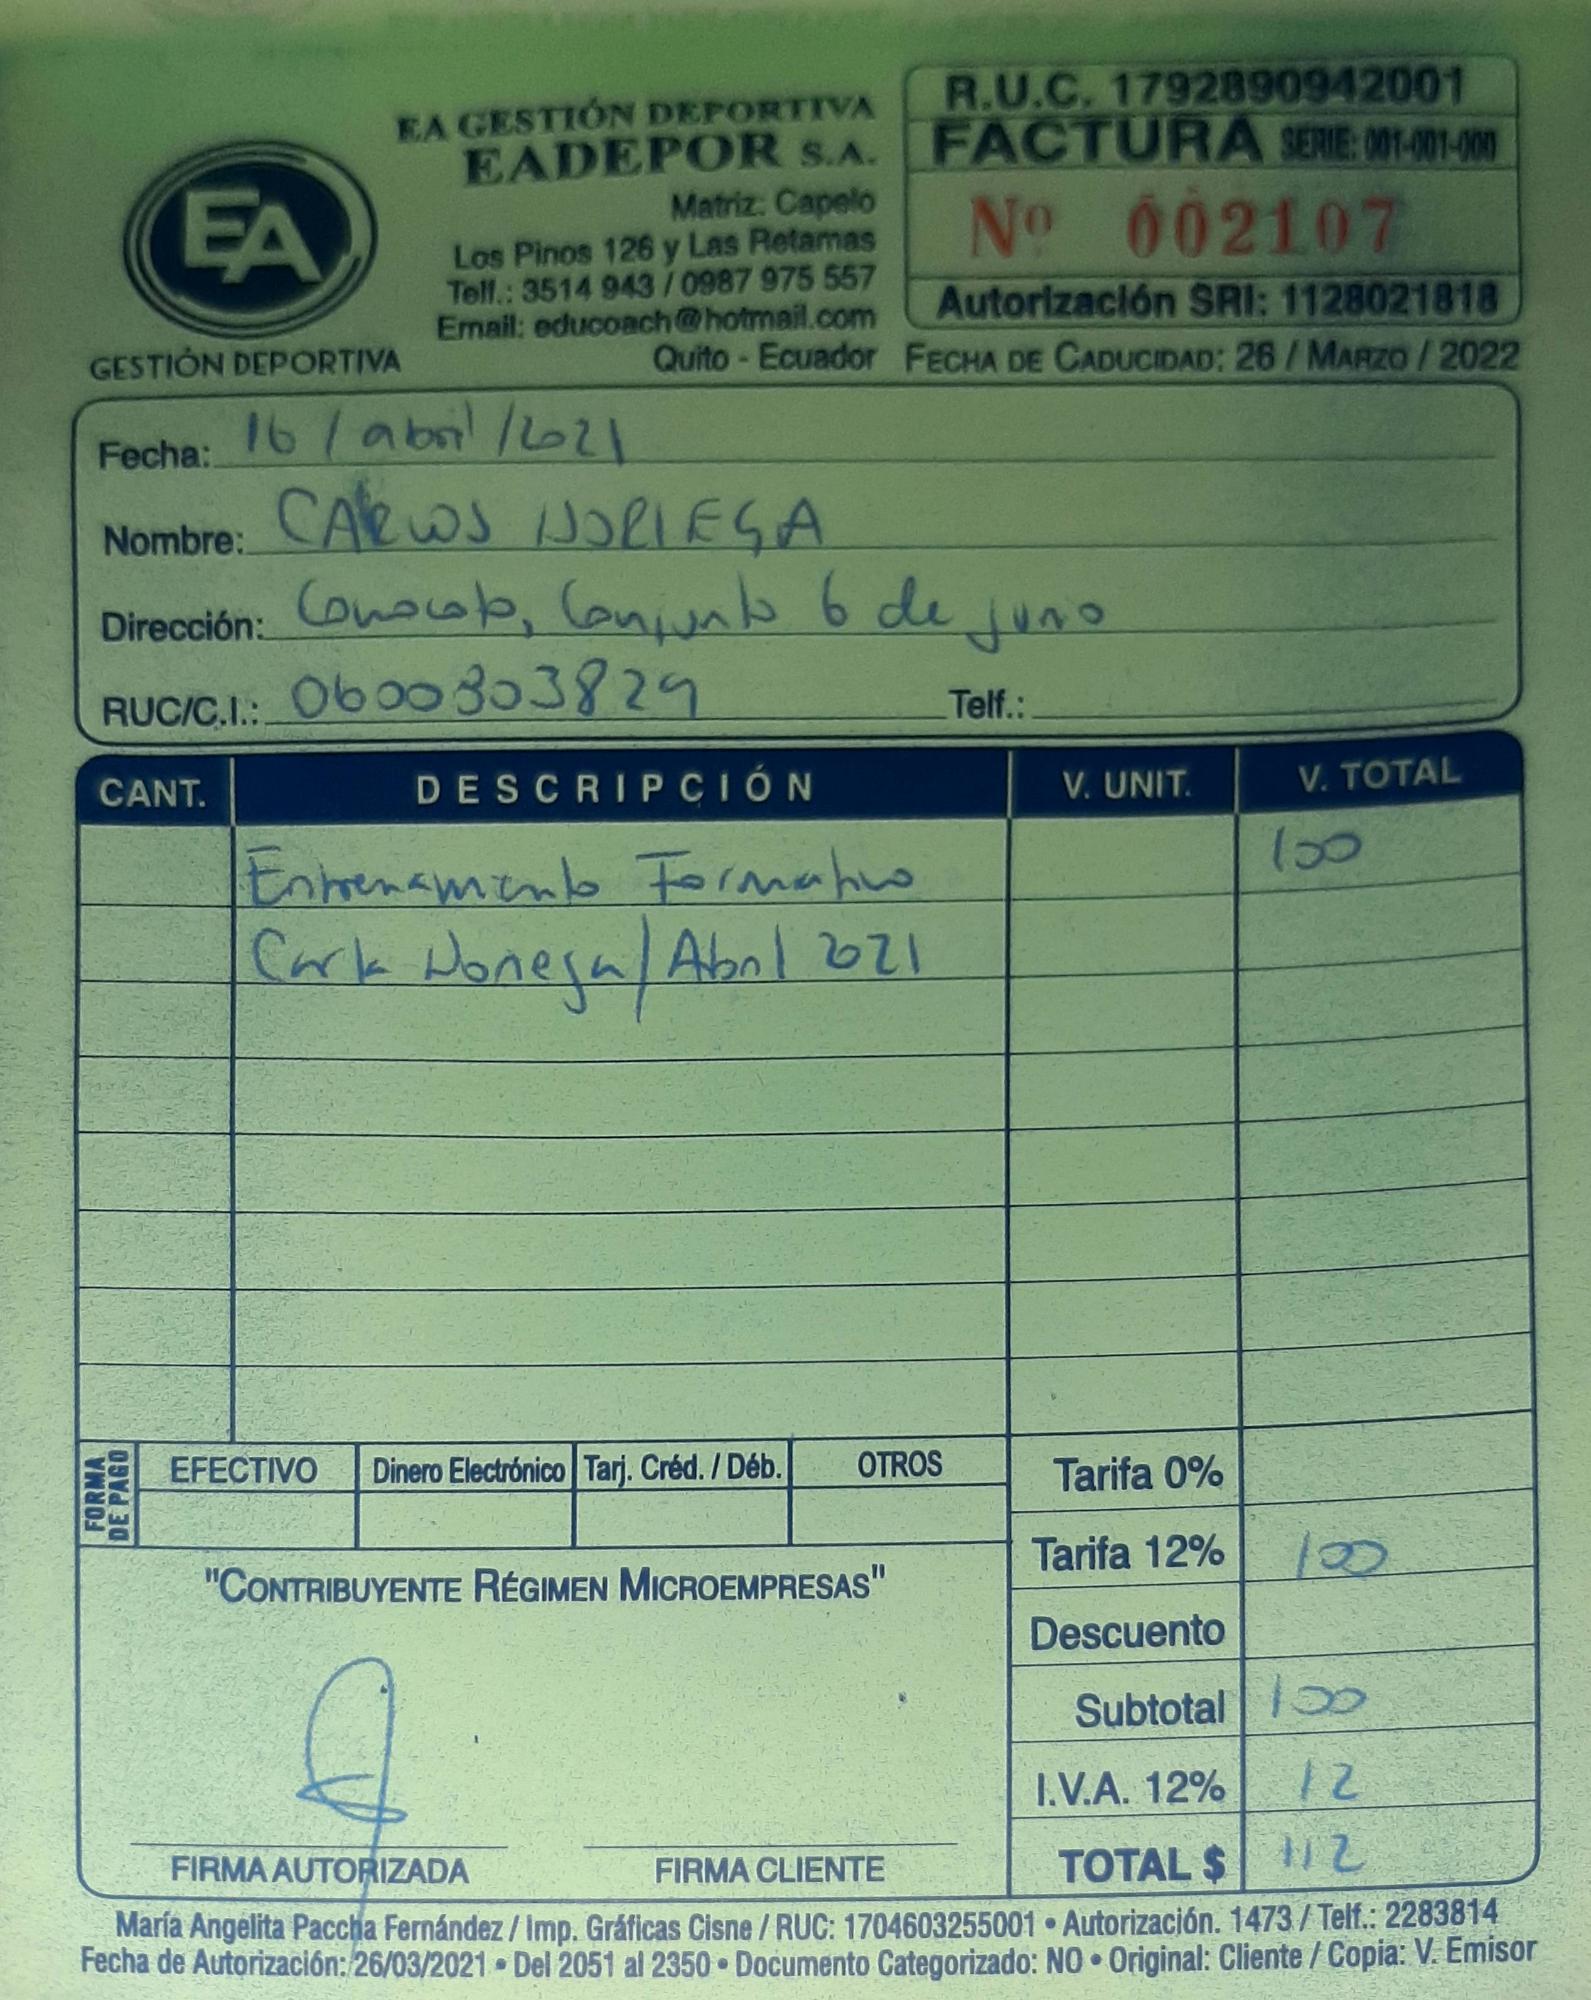 EA
GESTIÓN DEPORTIVA
EA GESTIÓN DEPORTIVA
EADEPOR S.A.
Matriz: Capelo
Los Pinos 126 y Las Retamas
Telf.: 3514 943 / 0987 975 557
Email: educoach@hotmail.com
Quito - Ecuador
R.U.C. 1792890942001
FACTURA SERIE: 001-001-000
Nº 002107
Autorización SRI: 1128021818
FECHA DE CADUCIDAD: 26 / MARZO / 2022
Fecha: 16 / abril / 2021
Nombre: CARLOS NORIEGA
Dirección: Conocoto, Conjunto 6 de junio
RUC/C.I.: 0600303829 Telf.:
CANT. DESCRIPCIÓN V. UNIT. V. TOTAL
Entrenamiento Formativo 100
Carla Noriega / Abril 2021
FORMA DE PAGO
EFECTIVO Dinero Electrónico Tarj. Créd. / Déb. OTROS
"CONTRIBUYENTE RÉGIMEN MICROEMPRESAS"
Tarifa 0%
Tarifa 12% 100
Descuento
Subtotal 100
I.V.A. 12% 12
TOTAL $ 112
FIRMA AUTORIZADA FIRMA CLIENTE
María Angelita Paccha Fernández / Imp. Gráficas Cisne / RUC: 1704603255001 • Autorización. 1473 / Telf.: 2283814
Fecha de Autorización: 26/03/2021 • Del 2051 al 2350 • Documento Categorizado: NO • Original: Cliente / Copia: V. Emisor